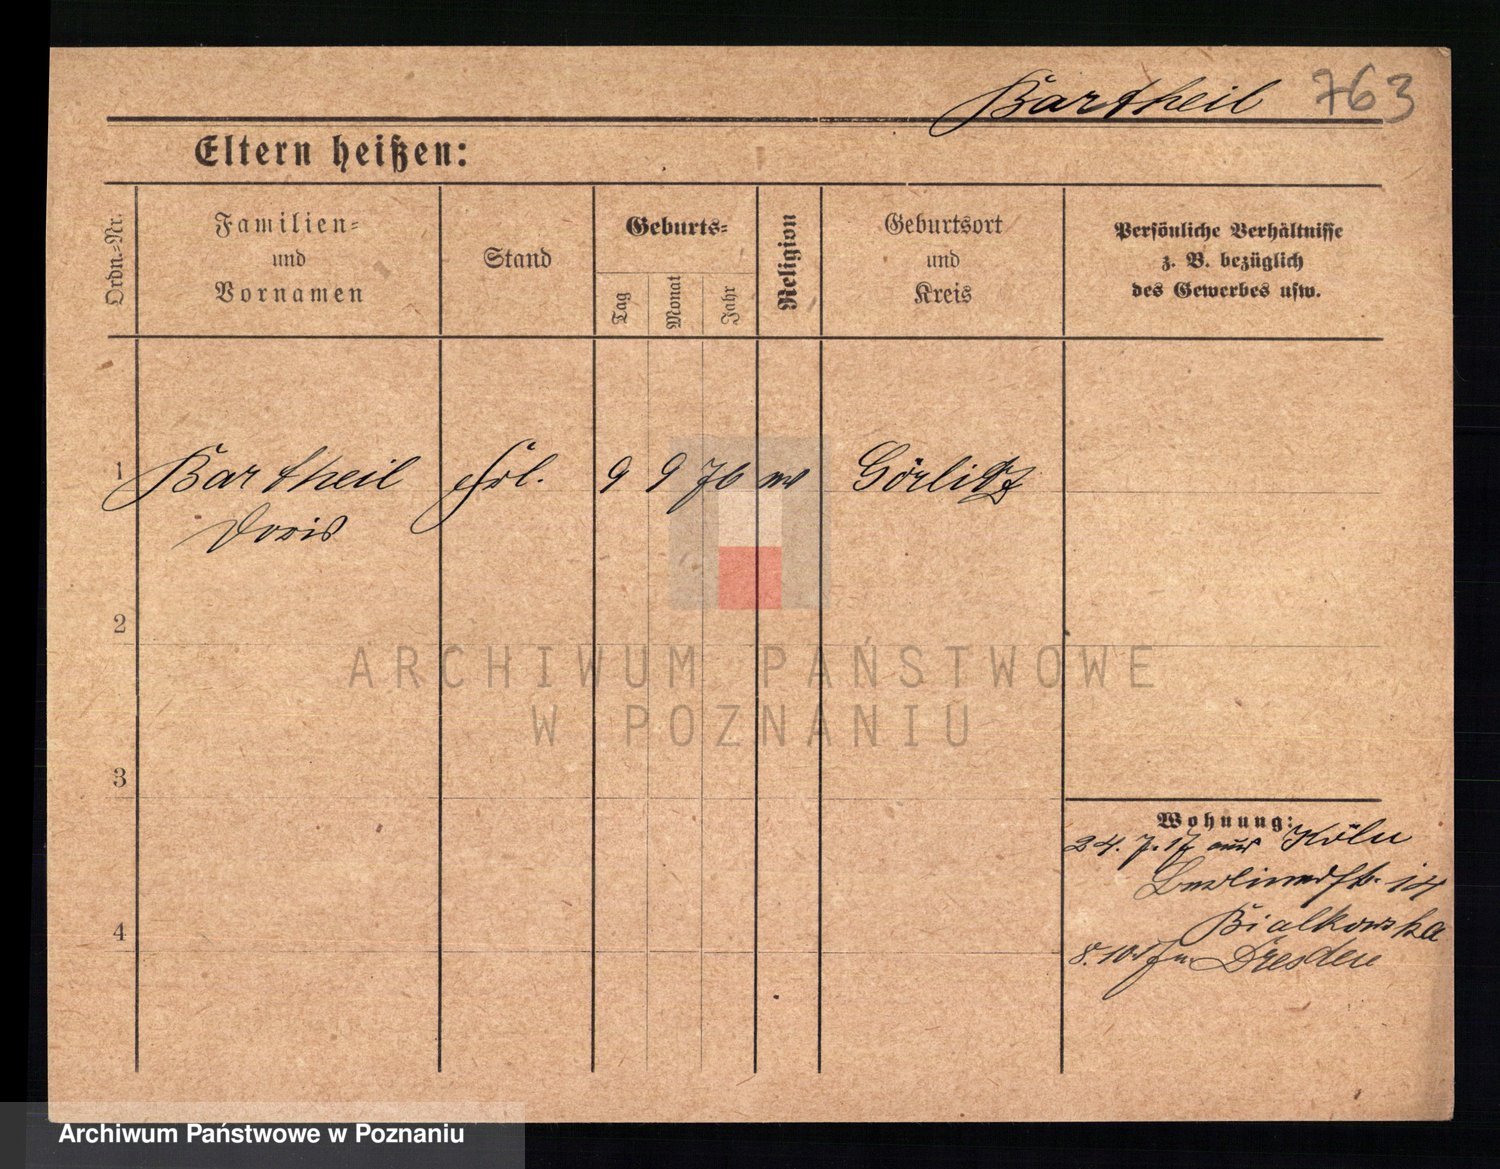 Bartheil 763
Eltern heißen:
Ordn.-Nr.
Familien-
und
Vornamen
Stand
Geburts-
Tag
Monat
Jahr
Religion
Geburtsort
und
Kreis
Persönliche Verhältnisse
z. B. bezüglich
des Gewerbes usw.
1 Bartheil Frl. 9 9 76 ev Görlitz
Doris
2
3
4
Wohnung:
24. 7. 17 aus Köln
Berlinerstr. 14
Bialkowska
8. 10. Dresden
ARCHIWUM PAŃSTWOWE
W POZNANIU
Archiwum Państwowe w Poznaniu